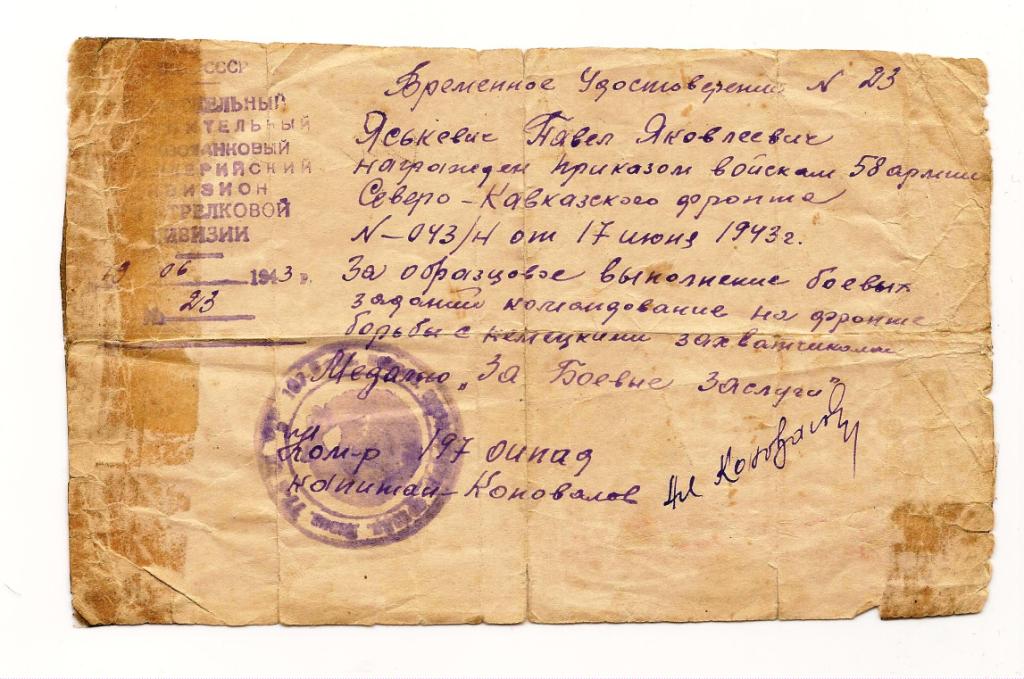 СССР
ТЕЛЬНЫЙ
ИТЕЛЬНЫЙ
ВОТАНКОВЫЙ
ЕРИЙСКИЙ
ВИЗИОН
СТРЕЛКОВОЙ
ДИВИЗИИ
19 06 1943 г.
№ 23
Временное Удостоверение N 23
Яськевич Павел Яковлеевич
награжден приказом войскам 58 армии
Северо-Кавказского фронта
N-043/н от 17 июня 1943г.
За образцовое выполнение боевых
заданий командование на фронте
борьбы с немецкими захватчиками
Медалью „За Боевые Заслуги"
Ком-р 197 оипад
капитан-Коновалов
Коновалов